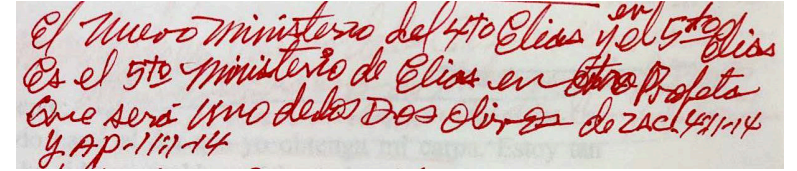 El Nuevo Ministerio del 4to Elias y en el 5to Elias
Es el 5to Ministerio de Elias en otro Profeta
Que será Uno de los Dos Olivos de ZAC. 4:1-14
y AP. 11:1-14